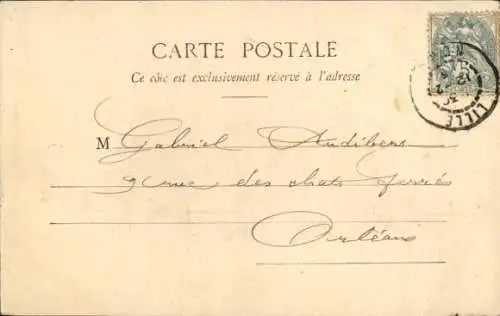 CARTE POSTALE
Ce côté est exclusivement réservé à l'adresse
M Gabriel Audibert
9 rue des chats ferrés
Orléans
LILLE